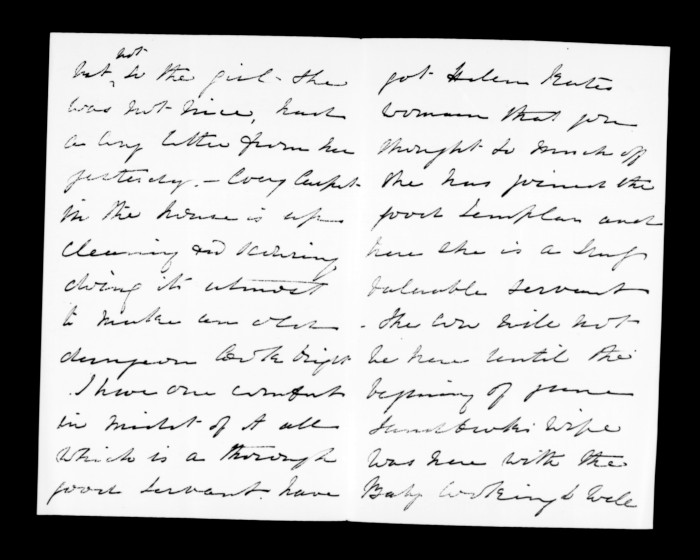 not
but to the girl - She
was not nice, had
a long letter from her
yesterday. - Every Carpet
in the house is up
cleaning and scouring
doing its utmost
to make an old
dungeon look bright
I have one comfort
in midst of it all
which is a thorough
good servant. have
got Helen Bates
woman that you
thought so much off
she has joined the
good Templars and
here she is a
valuable servant
- The Cow will not
be here until the
begining of June
wife
was here with the
Baby looking well